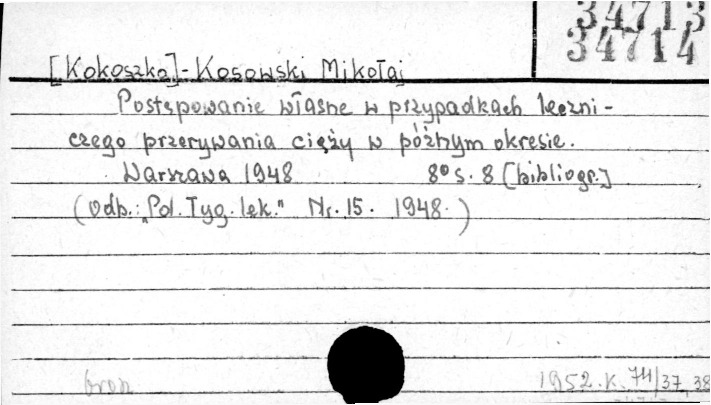 34713
34714
[Kokoszko]-Kosowski Mikołaj
Postępowanie własne w przypadkach leczni-
czego przerywania ciąży w późnym okresie.
Warszawa 1948 8° s. 8 [bibliogr.]
(Odb.: "Pol. Tyg. lek." Nr. 15. 1948.)
1952. K. 74/37, 38